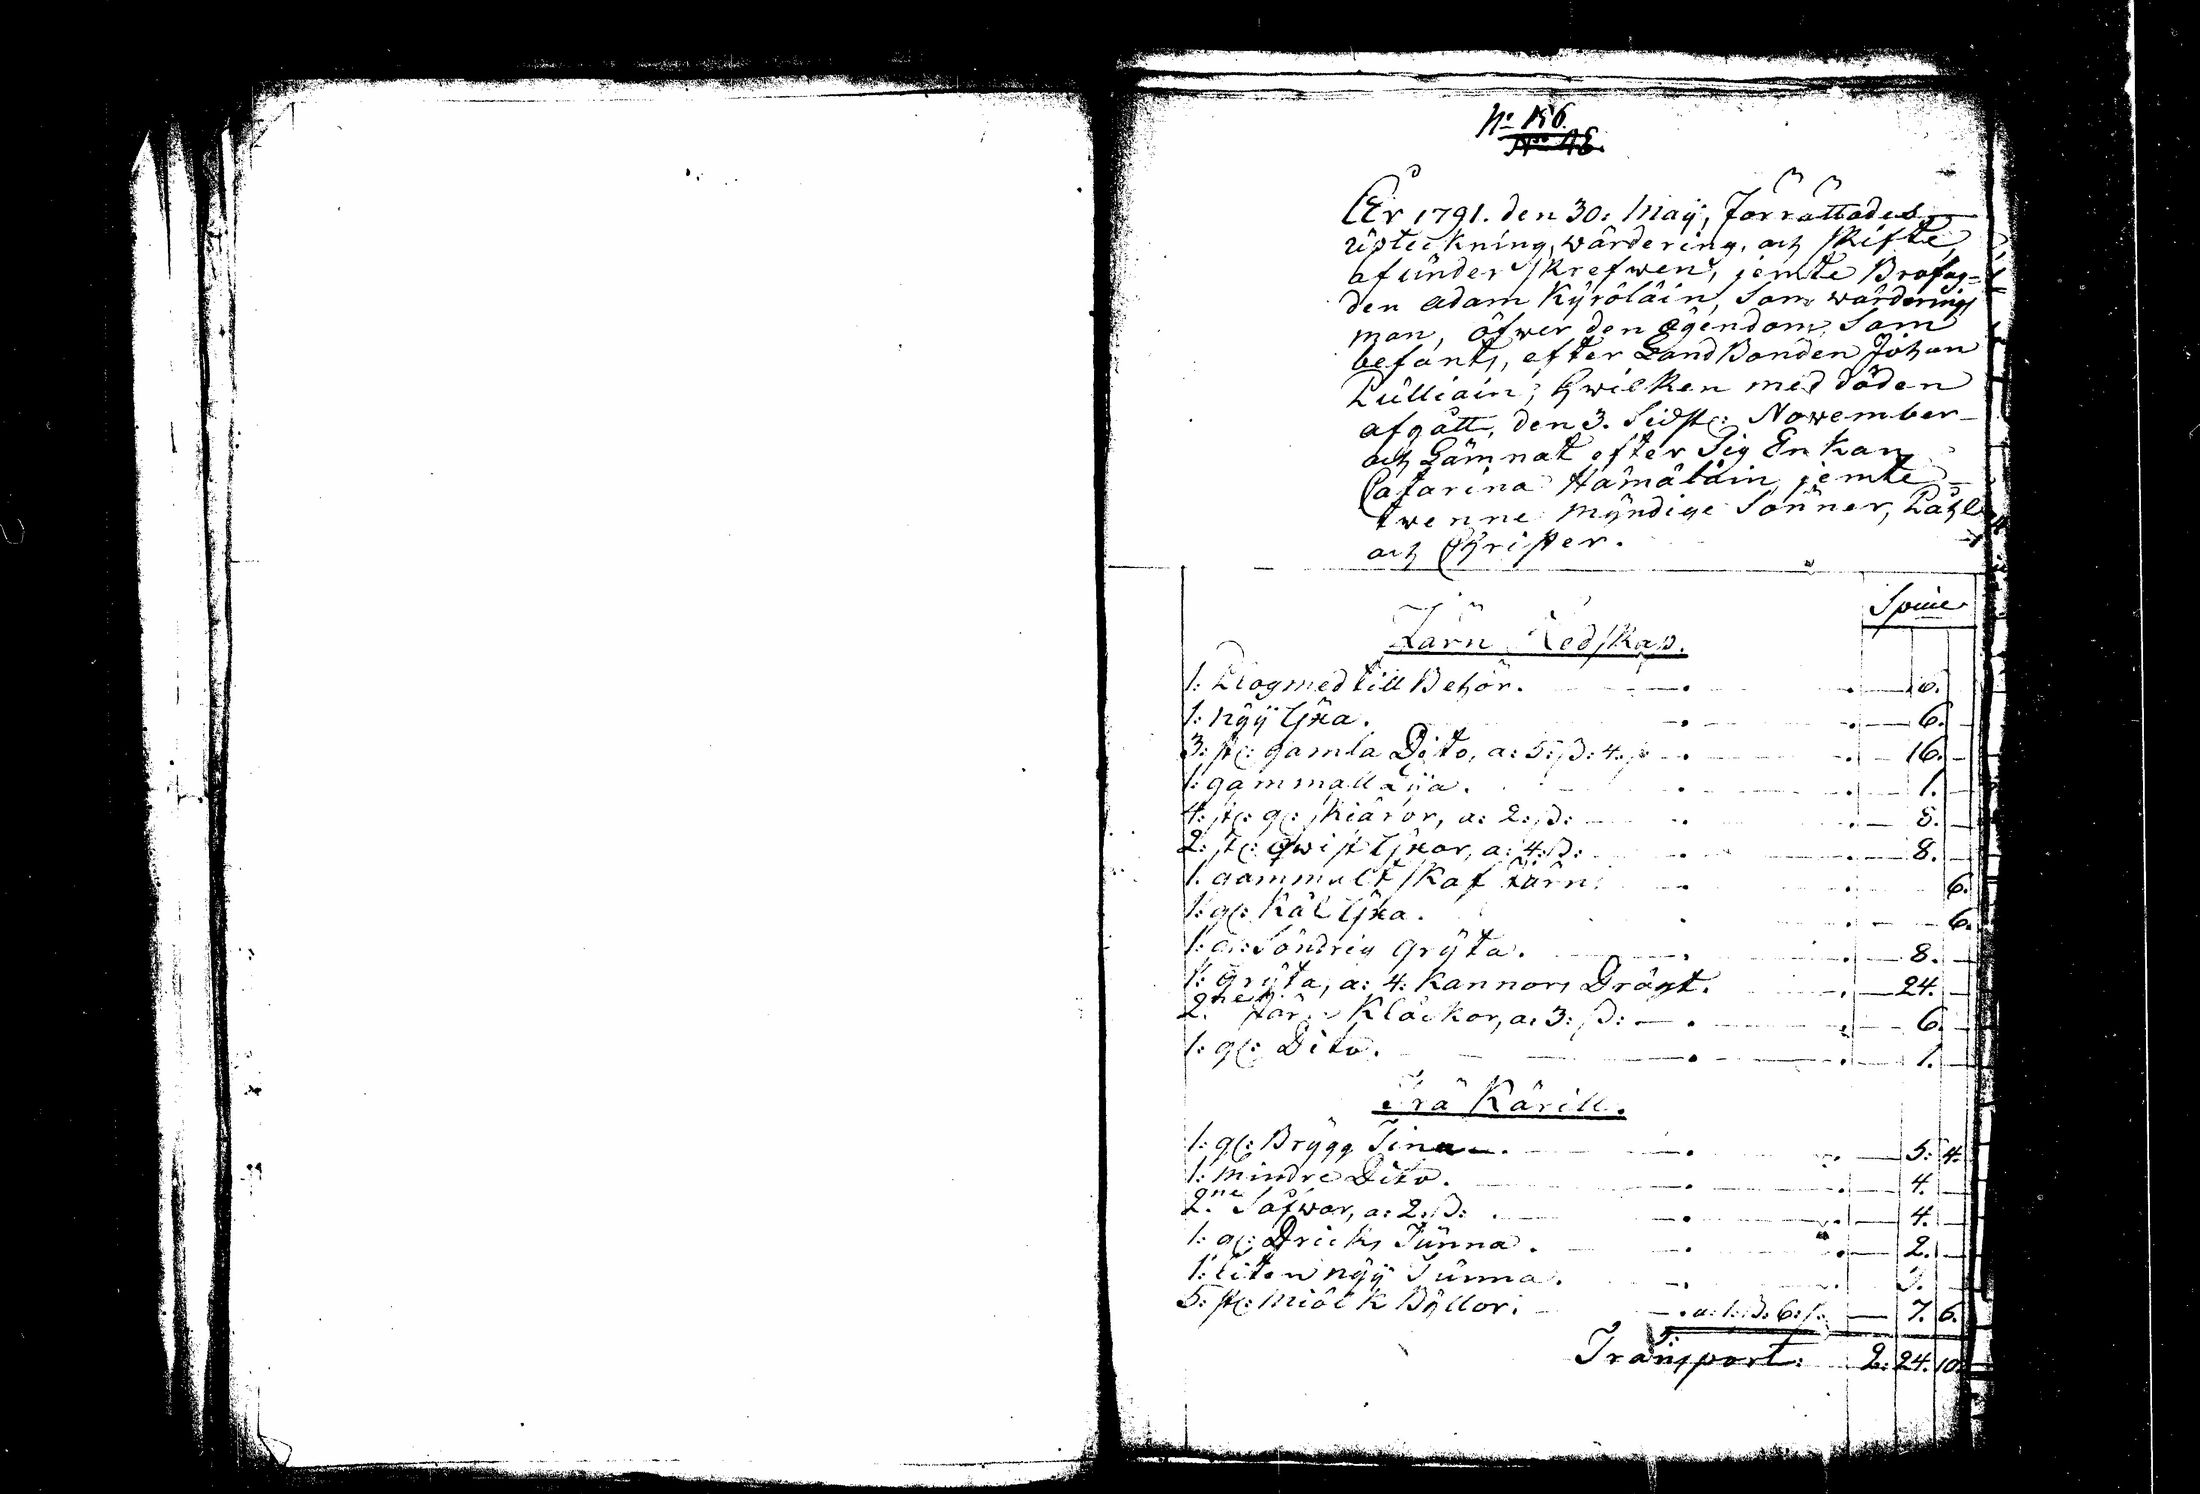 No 156.
År 1791. den 30: Maÿ, Förrättades
upteckning, wärdering, och skifte,
af underskrefwen, jemte Brofog-
den Adam Kÿröläin, som wärderings
man, öfwer den Egendom, Som
befants, efter LandBonden Johan
Pulliain, hwilken med döden
afgått, den 3. Sidstl: November
och Lämnat efter Sig Enkan
Catarina Hämäläin, jemte
twenne mÿndige Sönner, Påhl
och Christer.
Specie
Järn Redskap.
1: Plog med till Behör. 6.
1: nÿÿ ÿxa. 6.
3: st: gamla Dito, a: 5: ß: 4: 16.
1: gammall Lija. 1.
4: st: gl: skiäror, a: 2: ß: 8.
2: st: qwist ÿxor, a: 4: ß: 8.
1. gammalt skaf järn. 6.
1: gl: Kål ÿxa. 6.
1: gl: Söndrig grÿta. 8.
1: grÿta, a: 4: kannors Drägt. 24.
2ne Klåckor, a: 3: ß: 6.
1: gl: Dito. 1.
Trä Käril.
1: gl: Brÿgg Tina. 5. 4.
1: mindre Dito. 4.
2ne Såfwar, a: 2: ß: 4.
1: gl: Dricks Tunna. 2.
1: liten nÿÿ Tunna. 3.
5: st: miölk Bÿttor. a: 1: ß: 6: 7. 6.
Transport: 2: 24. 10.